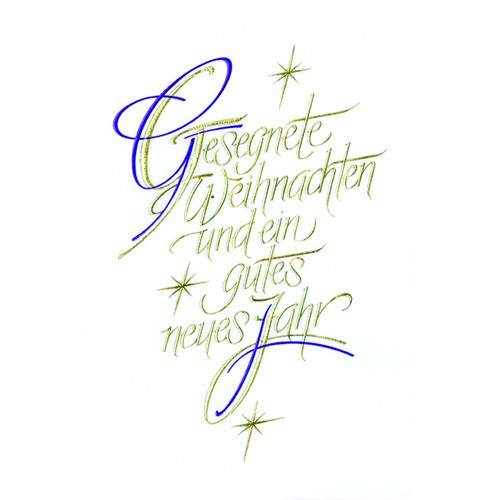 Gesegnete
Weihnachten
und ein
gutes
neues Jahr